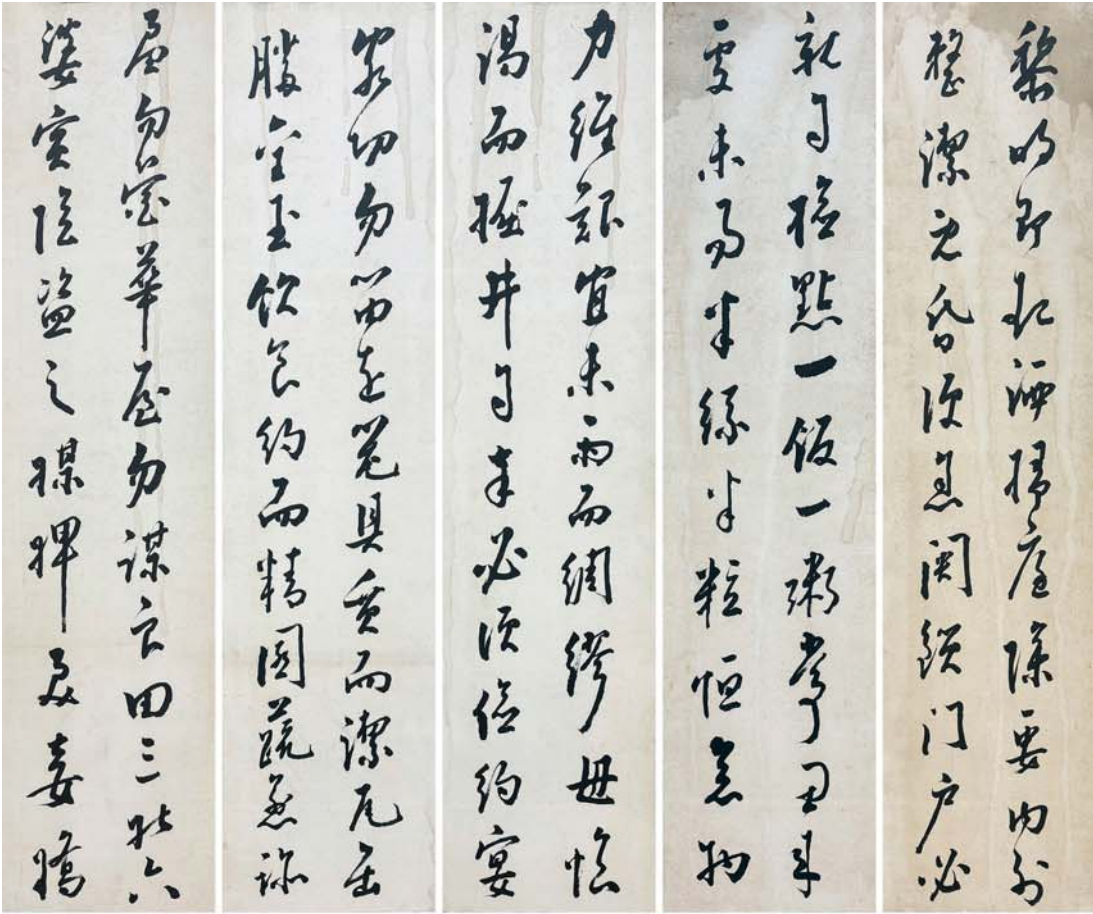 黎明即起洒掃庭除要内外
整潔既昏便息関鎖门户必
親自檢點一飯一粥當思来
處未易半絲半粒恒念物
力維艱宜未雨而綢繆毋臨
渴而掘井自奉必須儉約宴
客切勿留連器具質而潔瓦缶
勝金玉飲食約而精園蔬愈珍
羞勿營華屋勿謀良田三姑六
婆實淫盜之媒婢美妾嬌